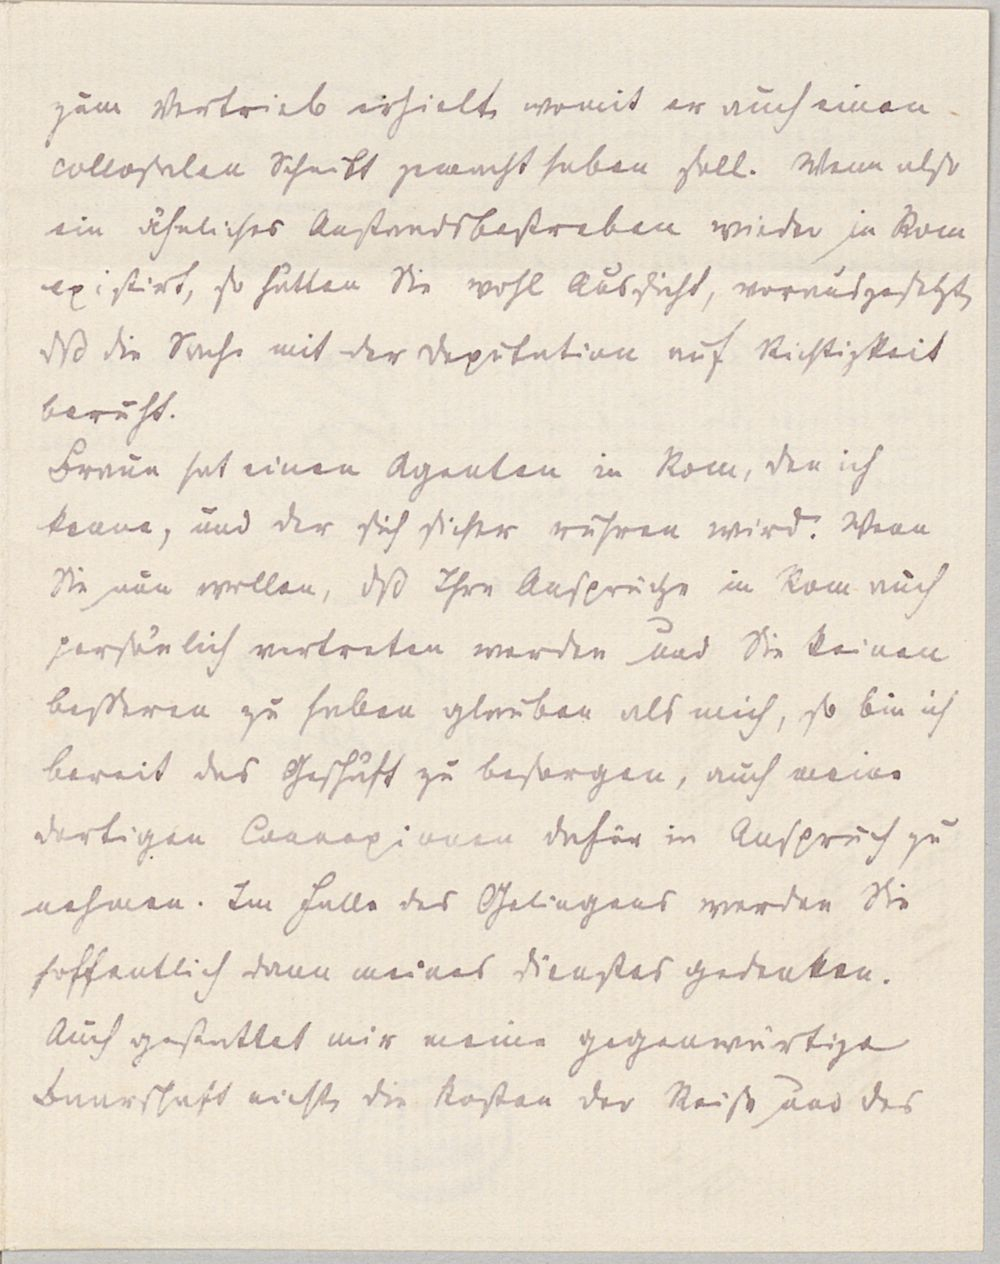 zum Vertrieb erhielt, womit er auch einen
collossalen Schnitt gemacht haben soll. Wenn also
ein ähnliches Anstandsbestreben wieder in Rom
existirt, so hätten Sie wohl Aussicht, vorausgesetzt,
dß die Sache mit der Deputation auf Richtigkeit
beruht.
Braun hat einen Agenten in Rom, den ich
kenne, und der sich sicher rühren wird. Wenn
Sie nun wollen, dß Ihre Ansprüche in Rom auch
persönlich vertreten werden und Sie keinen
besseren zu haben glauben als mich, so bin ich
bereit das Geschäft zu besorgen, auch meine
dortigen Connexionen dafür in Anspruch zu
nehmen. Im Falle des Gelingens werden Sie
hoffentlich dann meines Dienstes gedenken.
Auch gestattet mir meine gegenwärtige
Baarschaft nicht, die Kosten der Reise und des